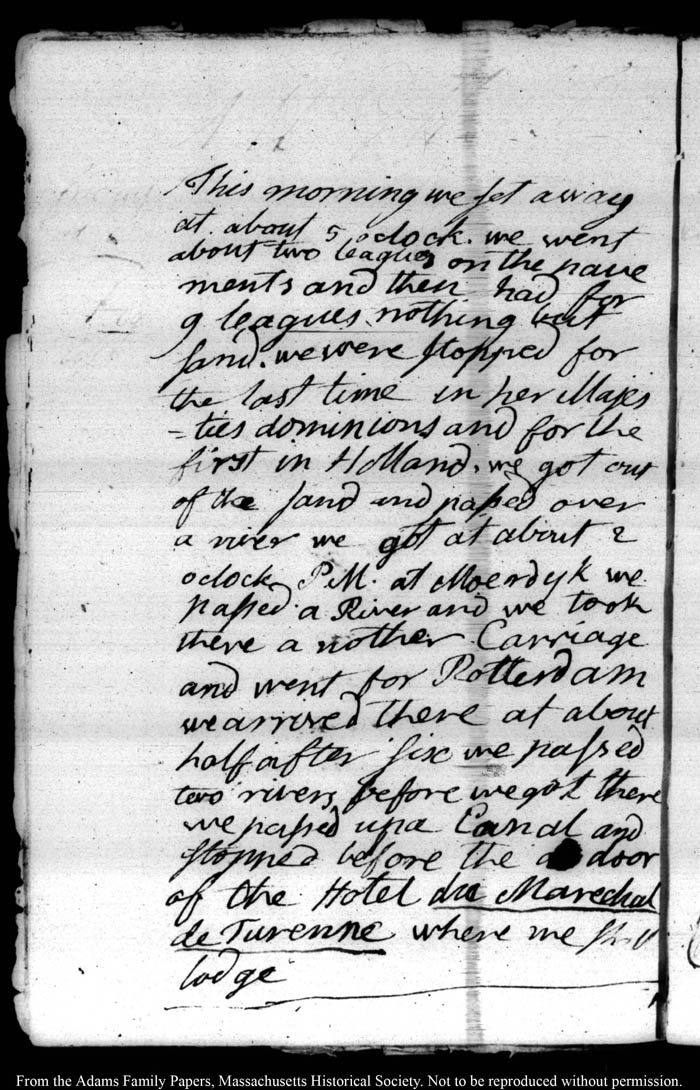 This morning we set away
at about 5 oclock. we went
about two leagues on the pave
ments and then had for
9 leagues nothing but
sand. we were stopped for
the last time in her Majes
-ties dominions and for the
first in Holland. we got out
of the sand and passed over
a river we got at about 2
oclock P.M. at Moerdyk we
passed a River and we took
there a nother Carriage
and went for Rotterdam
we arrived there at about
half after six we passed
two rivers before we got there
we passed up a Canal and
stopped before the door
of the Hotel du Marechal
de Turenne where we
lodge
From the Adams Family Papers, Massachusetts Historical Society. Not to be reproduced without permission.